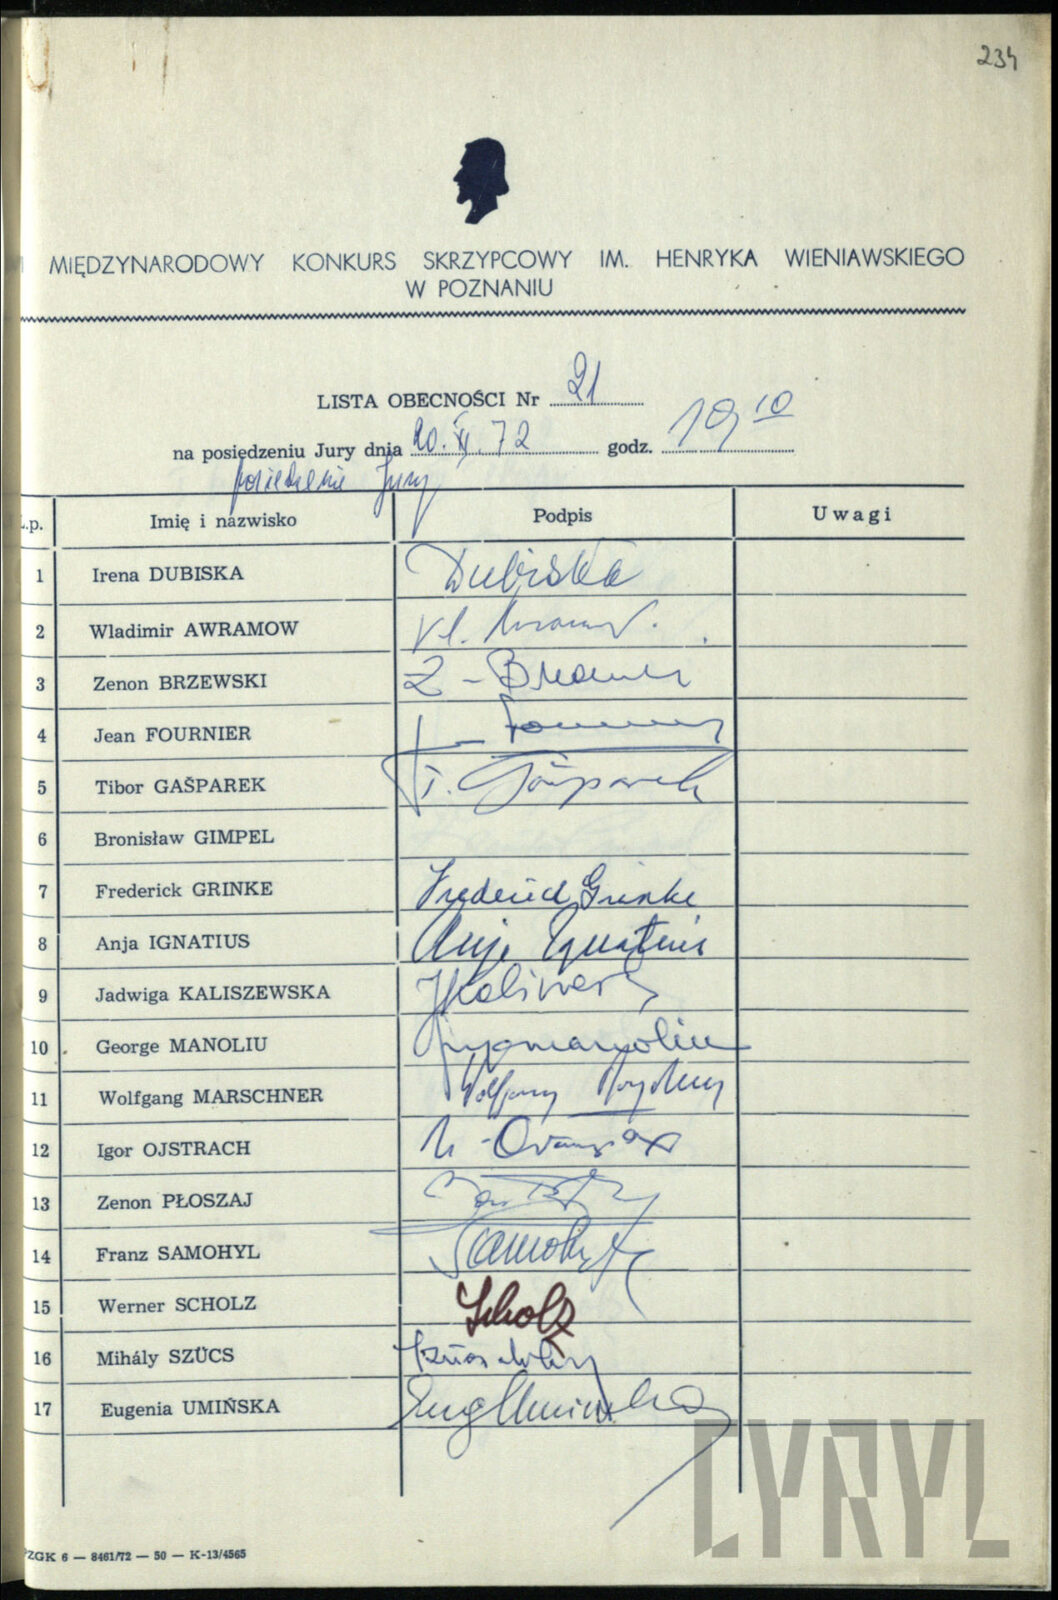 234
MIĘDZYNARODOWY KONKURS SKRZYPCOWY IM. HENRYKA WIENIAWSKIEGO
W POZNANIU
LISTA OBECNOŚCI Nr 21
na posiedzeniu Jury dnia 20. XI. 72 godz. 19 10
posiedzenie Jury
L.p. Imię i nazwisko Podpis Uwagi
1 Irena DUBISKA Dubiska
2 Wladimir AWRAMOW Vl.
3 Zenon BRZEWSKI Z-
4 Jean FOURNIER
5 Tibor GAŠPAREK T. Gašparek
6 Bronisław GIMPEL
7 Frederick GRINKE Frederick Grinke
8 Anja IGNATIUS Anja Ignatius
9 Jadwiga KALISZEWSKA
10 George MANOLIU
11 Wolfgang MARSCHNER Wolfgang
12 Igor OJSTRACH
13 Zenon PŁOSZAJ
14 Franz SAMOHYL Samohyl
15 Werner SCHOLZ Scholz
16 Mihály SZÜCS
17 Eugenia UMIŃSKA Eug Umińska
PZGK 6 — 8461/72 — 50 — K-13/4565
CYRYL